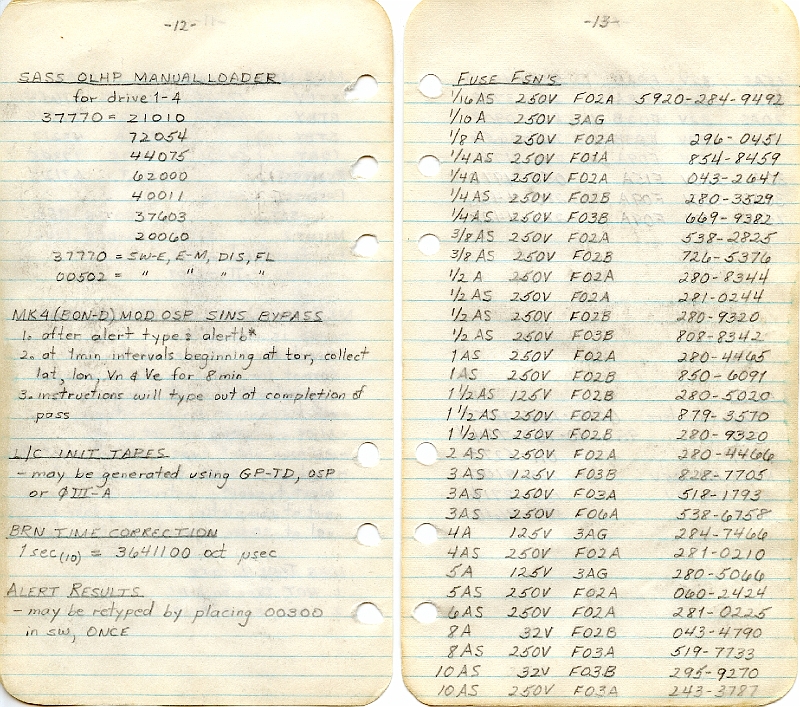 -12-
SASS OLHP MANUAL LOADER
for drive 1-4
37770 = 21010
72054
44075
62000
40011
37603
20060
37770 = SW-E, E-M, DIS, FL
00502 = " " " "
MK4 (EON-D) MOD OSP SINS BYPASS
1. after alert type: alertb*
2. at 1min intervals beginning at tor, collect
lat, lon, Vn & Ve for 8 min
3. instructions will type out at completion of
pass
L/C INIT TAPES
- may be generated using GP-TD, OSP
or ØIII-A
BRN TIME CORRECTION
1 sec(10) = 3641100 oct μsec
ALERT RESULTS
- may be retyped by placing 00300
in sw, ONCE
-13-
FUSE FSN'S
1/16 AS 250V F02A 5920-284-9492
1/10 A 250V 3AG
1/8 A 250V F02A 296-0451
1/4 AS 250V F01A 854-8459
1/4 A 250V F02A 043-2641
1/4 AS 250V F02B 280-3529
1/4 AS 250V F03B 669-9382
3/8 AS 250V F02A 538-2825
3/8 AS 250V F02B 726-5376
1/2 A 250V F02A 280-8344
1/2 AS 250V F02A 281-0244
1/2 AS 250V F02B 280-9320
1/2 AS 250V F03B 808-8342
1 AS 250V F02A 280-4465
1 AS 250V F02B 850-6091
1 1/2 AS 125V F02B 280-5020
1 1/2 AS 250V F02A 879-3570
1 1/2 AS 250V F02B 280-9320
2 AS 250V F02A 280-4466
3 AS 125V F03B 828-7705
3 AS 250V F03A 518-1793
3 AS 250V F06A 538-6758
4 A 125V 3AG 284-7466
4 AS 250V F02A 281-0210
5 A 125V 3AG 280-5066
5 AS 250V F02A 060-2424
6 AS 250V F02A 281-0225
8 A 32V F02B 043-4790
8 AS 250V F03A 519-7733
10 AS 32V F03B 295-9270
10 AS 250V F03A 243-3787